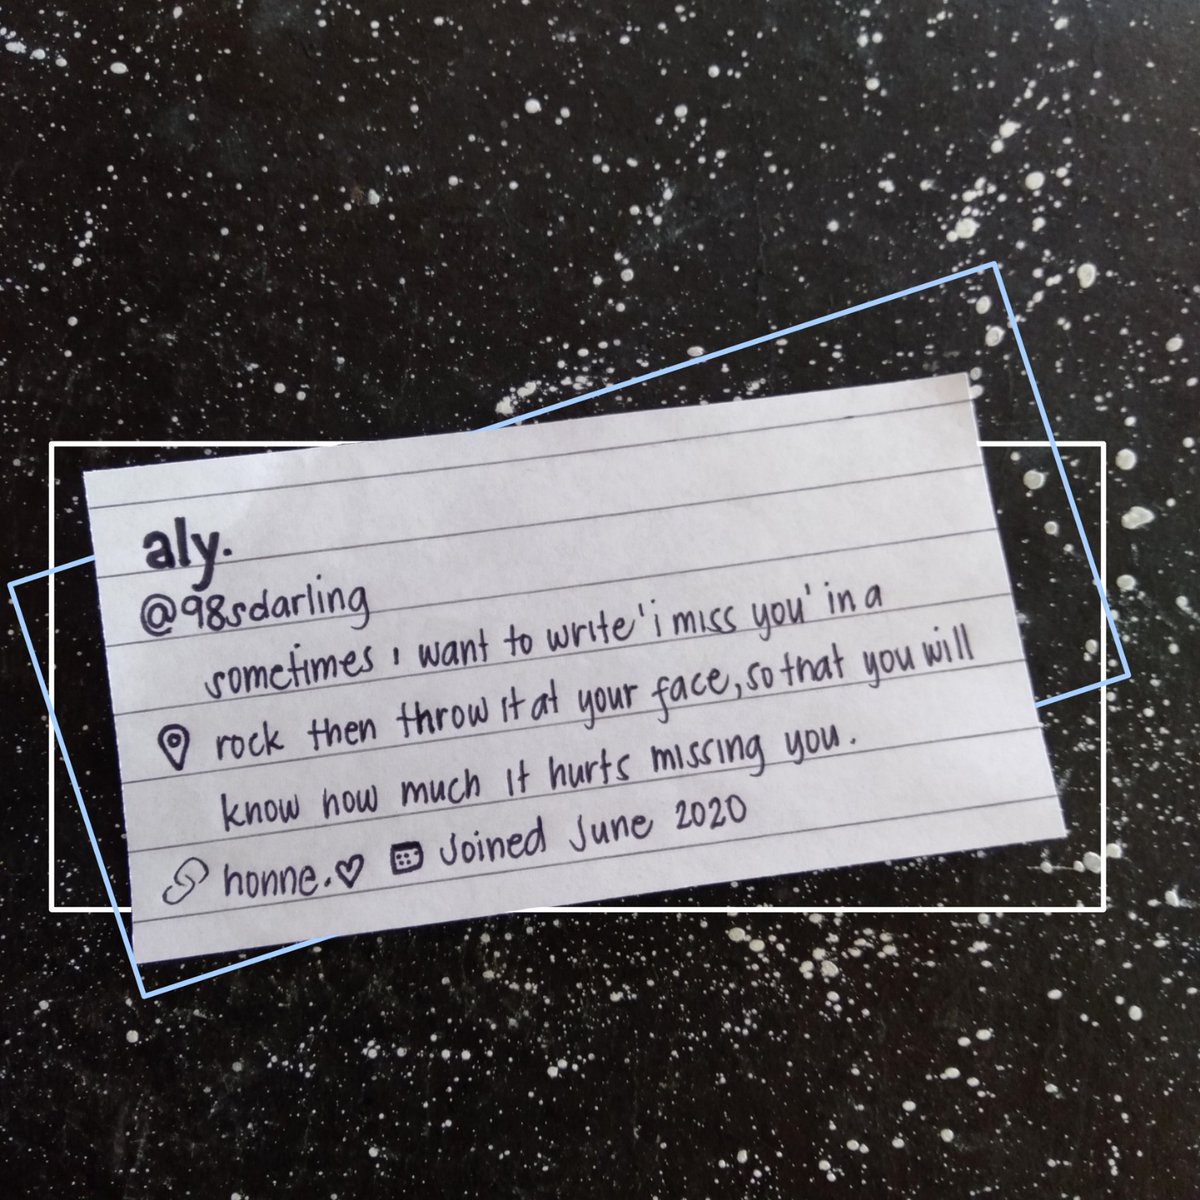 aly.
@98sdarling
sometimes i want to write 'i miss you' in a
rock then throw it at your face, so that you will
know how much it hurts missing you.
honne.♡ Joined June 2020